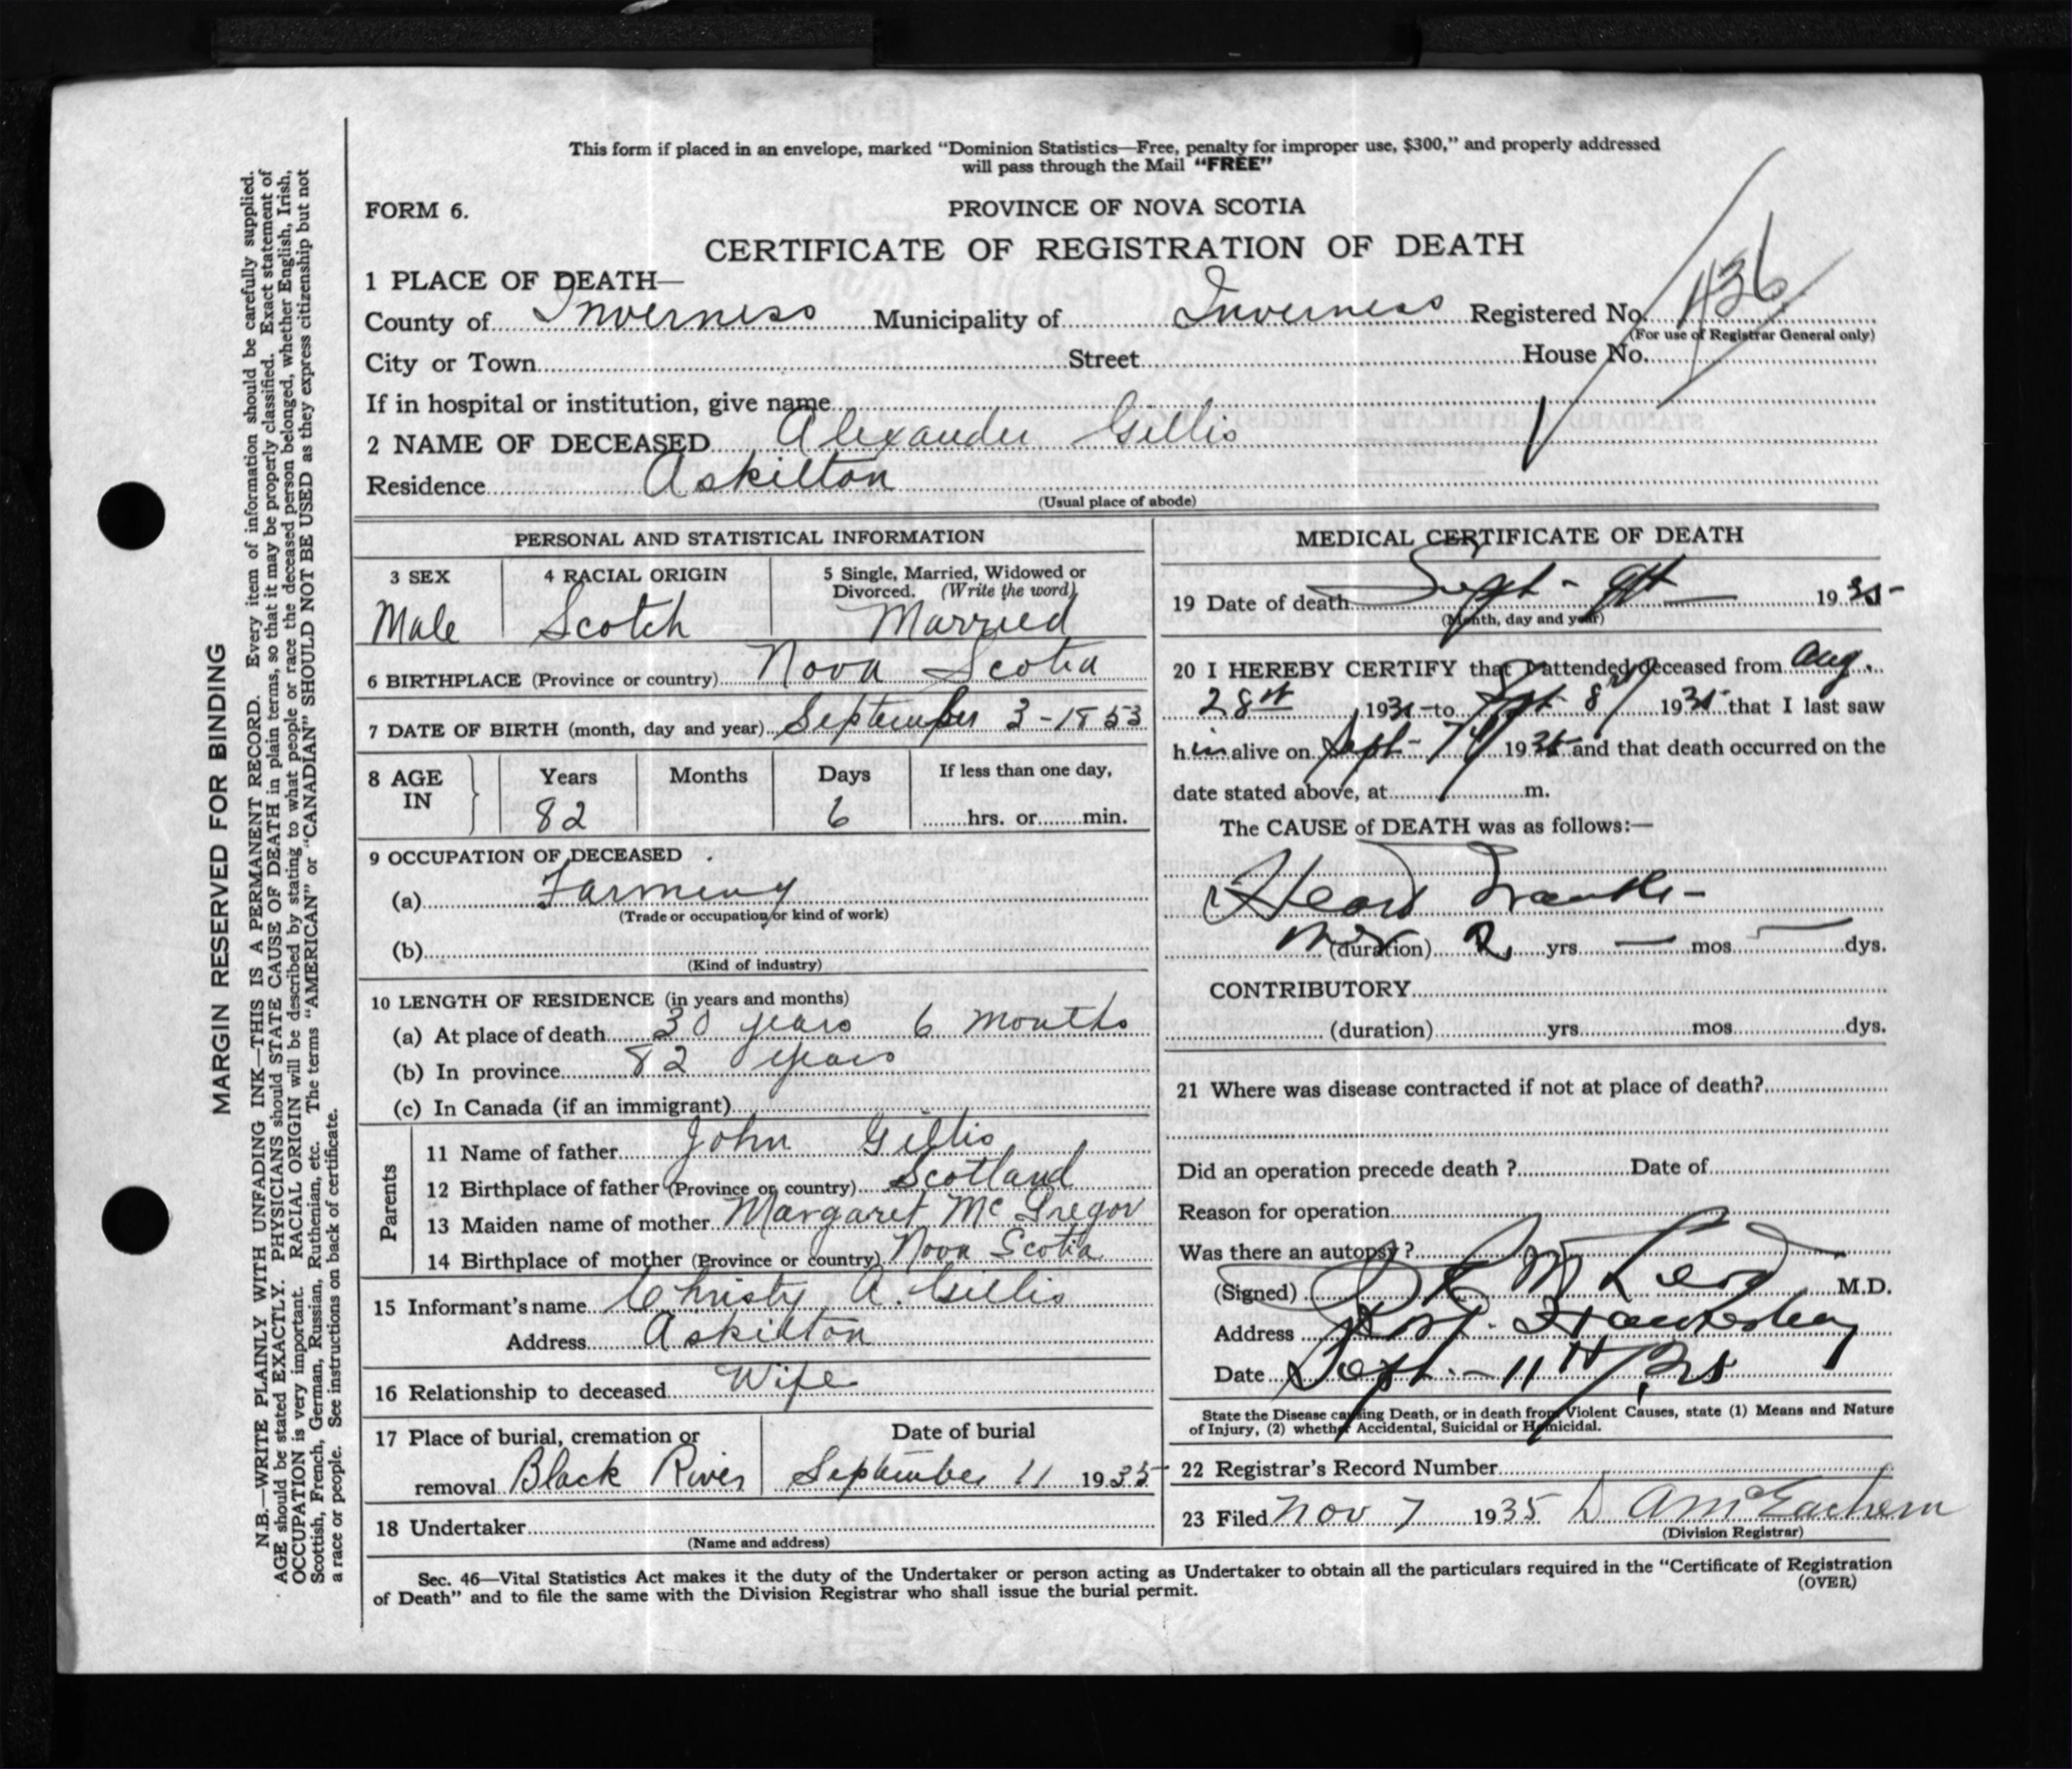 This form if placed in an envelope, marked “Dominion Statistics—Free, penalty for improper use, $300,” and properly addressed
will pass through the Mail “FREE”
FORM 6.
PROVINCE OF NOVA SCOTIA
CERTIFICATE OF REGISTRATION OF DEATH
1 PLACE OF DEATH—
County of Inverness Municipality of Inverness Registered No. 1136
(For use of Registrar General only)
City or Town Street House No.
If in hospital or institution, give name
2 NAME OF DECEASED Alexander Gillis
Residence Askilton
(Usual place of abode)
PERSONAL AND STATISTICAL INFORMATION
3 SEX 4 RACIAL ORIGIN 5 Single, Married, Widowed or
Divorced. (Write the word)
Male Scotch Married
6 BIRTHPLACE (Province or country) Nova Scotia
7 DATE OF BIRTH (month, day and year) September 3-1853
8 AGE IN Years Months Days If less than one day,
82 6 hrs. or min.
9 OCCUPATION OF DECEASED
(a) Farming
(Trade or occupation or kind of work)
(b)
(Kind of industry)
10 LENGTH OF RESIDENCE (in years and months)
(a) At place of death 30 years 6 months
(b) In province 82 years
(c) In Canada (if an immigrant)
Parents
11 Name of father John Gillis
12 Birthplace of father (Province or country) Scotland
13 Maiden name of mother Margaret McGregor
14 Birthplace of mother (Province or country) Nova Scotia
15 Informant's name Christy A. Gillis
Address Askilton
16 Relationship to deceased Wife
17 Place of burial, cremation or Date of burial
removal Black River September 11 1935
18 Undertaker
(Name and address)
MEDICAL CERTIFICATE OF DEATH
19 Date of death Sept - 9th 1935
(Month, day and year)
20 I HEREBY CERTIFY that I attended deceased from Aug.
28th 1935 to Sept 8th 1935 that I last saw
him alive on Sept - 7th 1935 and that death occurred on the
date stated above, at m.
The CAUSE of DEATH was as follows:—
Heart Trouble -
over (duration) 2 yrs. — mos. — dys.
CONTRIBUTORY
(duration) yrs. mos. dys.
21 Where was disease contracted if not at place of death?
Did an operation precede death ? Date of
Reason for operation
Was there an autopsy ?
(Signed) M.D.
Address Port Hawkesbury
Date Sept. - 11th/35
State the Disease causing Death, or in death from Violent Causes, state (1) Means and Nature
of Injury, (2) whether Accidental, Suicidal or Homicidal.
22 Registrar's Record Number
23 Filed Nov 7 1935 D A McEachern
(Division Registrar)
Sec. 46—Vital Statistics Act makes it the duty of the Undertaker or person acting as Undertaker to obtain all the particulars required in the “Certificate of Registration
of Death” and to file the same with the Division Registrar who shall issue the burial permit.
(OVER)
MARGIN RESERVED FOR BINDING
N.B.—WRITE PLAINLY WITH UNFADING INK—THIS IS A PERMANENT RECORD. Every item of information should be carefully supplied.
AGE should be stated EXACTLY. PHYSICIANS should STATE CAUSE OF DEATH in plain terms, so that it may be properly classified. Exact statement of
OCCUPATION is very important. RACIAL ORIGIN will be described by stating to what people or race the deceased person belonged, whether English, Irish,
Scottish, French, German, Russian, Ruthenian, etc. The terms “AMERICAN” or “CANADIAN” SHOULD NOT BE USED as they express citizenship but not
a race or people. See instructions on back of certificate.